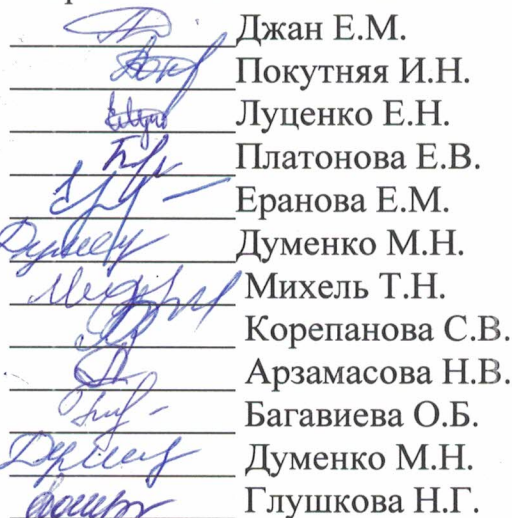 Джан Е.М.
Покутняя И.Н.
Луценко Е.Н.
Платонова Е.В.
Еранова Е.М.
Думенко М.Н.
Михель Т.Н.
Корепанова С.В.
Арзамасова Н.В.
Багавиева О.Б.
Думенко М.Н.
Глушкова Н.Г.